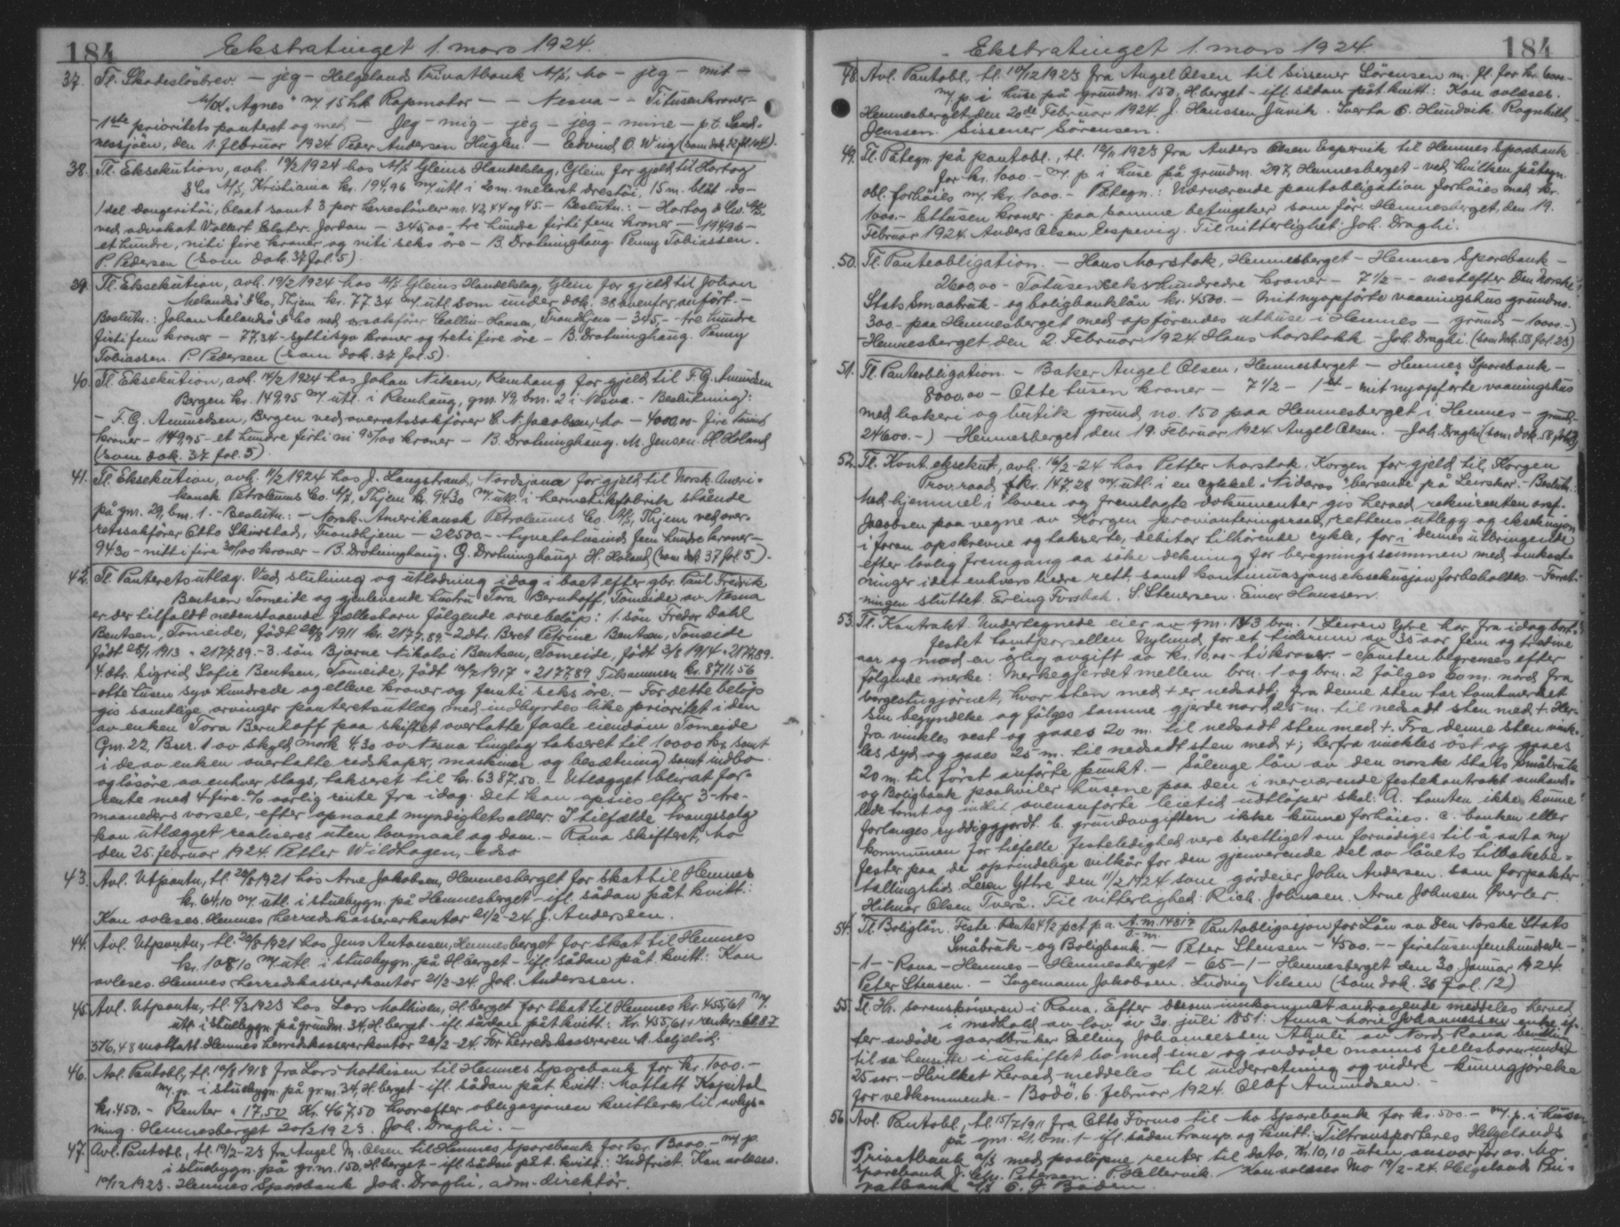 184
Ekstratinget 1. mars 1924.
37. Tl. Skadeslösbrev. - jeg - Helgelands Privatbank A/S, Mo - jeg - mit -
M/Sk. "Agnes" m/ 15 hk Rapmotor - - Nesna - - Titusenkroner -
- 1ste prioritets panteret og med - Jeg - mig - jeg - jeg - mine - p.t. Sand-
nessjöen, den 1. februar 1924 Peder Anderson Huglen - Edvind O. Wiig (som dok.
38. Tl. Eksekution, avh. 19/2 1924 hos A/S Gleins Handelslag, Glein for gjeld til Hartog
& Co A/S, Kristiania kr. 194,96 m/ utl. i 20 m. meleret drestöi, 15 m. blåt -do-
1 del dongeritöi, blaat samt 3 par herrestövler nr. 42, 44 og 45. - Beslutn.: - Hartog & Co. A/S
ved advokat Vollert Elster. Jordan - 345,00 - tre hundre firti fem kroner - 194,96 -
et hundre, niti fire kroner og niti seks öre - B. Drotninghaug. Penny Tobiassen.
P. Pedersen (som dok. 37 fol. 5).
39. Tl. Eksekution, avh. 19/2 1924 hos A/S Gleins Handelslag, Glein for gjeld til Johan
Melandsö & Co, Thjem kr. 77,34 m/ utl. som under dok. 38 ovenfor anfört. -
Beslutn.: Johan Melandsö & Co ved ersaksförer Collin-Hansen, Trondhjem - 345,- tre hundre
firti fem kroner - 77,34 - syttisyv kroner og treti fire öre - B. Drotninghaug. Penny
Tobiassen. P. Pedersen (som dok. 37 fol. 5).
40. Tl. Eksekution, avh. 14/2 1924 hos Johan Nilsen, Remhaug for gjeld til F.G. Amundsen
Bergen kr. 149,95 m/ utl. i Remhaug, gm. 49, bm. 2 i Nesna. - Beslutning:
- F.G. Amundsen, Bergen ved overretssakförer E. N. Jacobsen, Mo - 4000,00 - fire tusind
kroner - 149,95 - et hundre firti ni 95/100 kroner - B. Drotninghaug. M. Jensen. H. Holand
(som dok. 37 fol. 5).
41. Tl. Eksekution, avh. 11/2 1924 hos J. Langstrand, Nordsjona for gjeld til Norsk Ameri-
kansk Petroleums Co. A/S, Thjem kr. 94,30 m/ utl. i hermetikfabrik stående
på gm. 29, bm. 1. - Beslutn.: - Norsk-Amerikansk Petroleums Co. A/S, Thjem ved over-
retssakförer Otto Skirstad, Trondhjem - 22500 - tyvetotusind fem hundre kroner -
94,30 - nitti fire 30/100 kroner - B. Drotninghaug. G. Drotninghaug H. Holand (som dok. 37 fol. 5).
42. Tl. Panteretsutlæg. Ved slutning og utlodning idag i boet efter gbr. Paul Fredrik
Bentsen, Tomeide og gjenlevende hustru Tora Bernhoff, Tomeide, av Nesna
er der tilfaldt nedenstaaende fællesbarn følgende arvebeløp: 1. sön Fredor Dahl
Bentsen, Tomeide, födt 1911 kr. 2177,89 - 2. dtr. Beret Petrine Bentsen, Tomeide
födt 25/1 1913 " 2177,89. - 3. sön Bjarne Nikolai Bentsen, Tomeide, födt 3/8 1914 " 2177,89.
4. dtr. Sigrid Sofie Bentsen, Tomeide, födt 1917 " 2177,89 Tilsammen kr. 8711,56
- otte tusen syv hundrede og elleve kroner og femti seks öre. - For dette belöp
gis samtlige arvinger panteretsutlæg med indbyrdes like prioritet i den
av enken Tora Bernhoff paa skiftet overtatte faste eiendom Tomeide
Gnr. 22, Bnr. 1 av skyld mark 4.30 av Nesna tinglag takseret til 10000 kr, samt
i de av enken overtatte redskaper, maskiner og besætning samt indbo
og lösöre av enhver slags, takseret til kr. 6387,50. - Utlægget blir at for-
rente med 4 - fire - % aarlig rente fra idag. Det kan opsies efter 3 - tre -
maaneders varsel, efter opnaaet myndighetsalder. I tilfælde tvangssalg
kan utlægget realiseres uten lovmaal og dom. - Rana skifteret, Mo
den 25. februar 1924. Petter Wildhagen, edso
43. Avl. Utpantn, tl. 1921 hos Arne Jakobsen, Hemnesberget for skat til Hemnes
kr. 64,10 m/ utl. i stuebygn. på Hemnesberget - ifl. sådan påt. kvitt:
Kan avleses. Hemnes herredskasserkontor 21/2-24. J. Anderssen.
44. Avl. Utpantn, tl. 1921 hos Jens Antonsen, Hemnesberget for skat til Hemnes
kr. 108,10 m/ utl. i stuebygn. på H.berget - ifl. sådan påt. kvitt: Kan
avleses. Hemnes herredskasserkontor 21/2-24. Joh. Anderssen.
45. Avl. Utpantn, tl. 1923 hos Lars Mathisen, H.berget for skat til Hemnes kr. 455,61 m/
utl. i stuebygn. på grundm. 34, H.berget - ifl. sådan påt. kvitt: Kr. 455,61 + renter = 60,87
516,48 mottatt. Hemnes herredskasserkontor 22/2-24. For herredskassereren M. Seljelid.
46. Avl. Pantobl, tl. 1918 fra Lars Mathisen til Hemnes Sparebank for kr. 1000.-
m/ p. i stuebygn. på gr.m. 34, H.berget - ifl. sådan påt. kvitt: Mottatt Kapital
kr. 450.- Renter " 17,50 Kr. 467,50 hvorefter obligasjonen kvitteres til avlys-
ning. Hemnesberget 1923. Joh. Draghi. -
47. Avl. Pantobl, tl. 19/2-23 fra Angel M. Olsen til Hemnes Sparebank for kr. 13000.- m/ p.
i stuebygn. på gr.m. 150, H.berget - ifl. sådan påt. kvitt.: Indfriet. Kan avleses.
19/12 1923. Hemnes Sparebank Joh. Draghi, adm. direktör.
184
Ekstratinget 1. mars 1924
48. Avl. Pantobl, tl. 10/12 1923 fra Angel Olsen til Sissener Sörensen m. fl. for kr. 6000.-
m/ p. i huse på grundm. 150, H.berget - ifl. sådan påt. kvitt: Kan avleses.
Hemnesberget den 20de Februar 1924 J. Hanssen Juvik. Sverta O. Hundvik Ragnhild
Jenssen. Sissener Sörensen.
49. Tl. Påtegn. på pantobl., tl. 12/11 1923 fra Anders Olsen Espervik til Hemnes Sparebank
for kr. 1000.- m/ p. i huse på grundm. 297, Hemnesberget - ved hvilken påtegn.
obl. forhöies m/ kr. 1000.- Påtegn.: Nærværende pantobligation forhöies med kr.
1000.- Ettusen kroner - paa samme betingelser som för. Hemnesberget, den 19.
Februar 1924. Anders Olsen Espevig. Til vitterlighet: Joh. Draghi.
50. Tl. Panteobligation. - Hans Marstok, Hemnesberget - Hemnes Sparebank -
2600,00 - Totusensekshundredre kroner - 7 1/2 - - næstefter Den Norske
Stats Smaabruk - og boligbanklån kr. 4500. - mit nyopförte vaaningshus grundno.
300 - paa Hemnesberget med opförendes uthuse i Hemnes - grund - 10000.-)
Hemnesberget den 2. Februar 1924. Hans Marstokk - Joh. Draghi. (som dok. 58 fol. 23)
51. Tl. Panteobligation. - Baker Angel Olsen, Hemnesberget - Hemnes Sparebank -
8000,00 - Otte tusen kroner - 7 1/2 - 1st - mit nyopförte vaaningshus
med bakeri og butik grund no. 150 paa Hemnesberget i Hemnes - grund -
24600.-) - Hemnesberget den 19. Februar 1924 Angel Olsen. - Joh. Draghi (som dok. 58
52. Tl. Kont. eksekut, avh. 16/2-24 hos Petter Marstok, Korgen for gjeld til Korgen
Prov.raad, kr. 147,28 m/ utl. i en cykkel "Nidaros" beroende på Leirskar. - Beslutn.:
Med hjemmel i loven og fremlagte dokumenter gis herved rekvirenten orsf.
Jacobsen paa vegne av Korgen provianteringsraad, rettens utlegg og eksekusjon
i foran opskrevne og takserte, debitor tilhörende cykle, for i dennes utbringende
efter lovlig fremgang aa söke dekning for beregningssummen med omkost-
ninger i det enhvers bedre rett, samt kontinuasjonseksekusjon forbeholdes. - Forret-
ningen sluttet. Erling Forsbak. S. Stenersen. Einar Hanssen.
53. Tl. Kontrakt. Undertegnede eier av gm. 143 brn. 1 Leiren Ytre har fra idag bort-
festet tomtparsellen Nylund for et tidsrum av 35 aar fem og tredive
aar og mod en årlig avgift av kr. 10,00 - ti kroner. - Tomten begrenses efter
følgende merke: Merkegjerdet mellem brn. 1 og brn. 2 følges 60 m. nord fra
vorgestugjörnet, hvor sten med + er nedsatt, fra denne sten tar tomtmerket
sin begyndelse og følges samme gjerde nord 25 m. til nedsatt sten med +. Her-
fra vinkles vest og gaaes 20 m. til nedsatt sten med +. Fra denne sten vink-
les syd og gaaes 25 m. til nedsatt sten med +; herfra vinkles öst og gaaes
20 m. til först anförte punkt. - Sålenge lån av den norske Stats Småbruk
og Boligbank paahviler husene paa den i nærværende festekontrakt omhand-
lede tomt og indtil ovenanförte leietid utlöper skal: a. tomten ikke kunne
forlanges ryddiggjort. b. grundavgiften ikke kunne forhöies. c. banken eller
kommunen for tilfelle festeledighed vere berettiget om fornödiges til å anta ny
fester paa de oprindelige vilkår for den gjenværende del av lånets tilbakebe-
talingstid. Leiren Ytre, den 11/2 1924 som gårdeier John Andersen. som forpakter
Hilmar Olsen Tverå. Til vitterlighed: Rich. Johnsen. Arne Johnsen Överler.
54. Tl. Boliglån. Feste Rente 4 1/2 pct p.a. A.m. 14817 Pantobligasjon for Lån av Den Norske Stats
Småbruk - og Boligbank. - Peter Stensen - 4500. - - firetusenfemhundrede -
- 1 - - Rana - Hemnes - Hemnesberget - 65 - 1 - Hemnesberget den 30 Januar 1924.
Peter Stensen. - Ingemann Jakobsen. Ludvig Nilsen (som dok. 36 fol. 12)
55. Tl. Hr. sorenskriveren i Rana. Efter derom innkommet andragende meddeles herved
i medhold av lov av 30. juli 1851: Anna Marie Johannessen enke ef-
ter avdøde gaardbruker Elling Johannessen av Nord Rana bevilling
til sa hensitte i uskiftet bo med sine og avdøde manns fellesbarn under
25 aar. - Hvilket herved meddeles til underretning og videre kunngjørelse
for vedkommende. - Bodö, 6. februar 1924. Olof Amundsen. -
56. Avl. Pantobl, tl. 15/7 1911 fra Otto Formo til Mo Sparebank for kr. 500.- m/ p. i huse
på gm. 21, bm. 1 - ifl. sådan transp. og kvitt: Tiltransporteres Helgelands
Privatbank A/S med paaløpne renter til dato, kr. 10,10 uten ansvar for os. Mo
sparebank J. Chr. Petersen. P. Hellervik. Kan avleses Mo 19/2-24. Helgelands Pri-
vatbank A/S O. J. Boden.